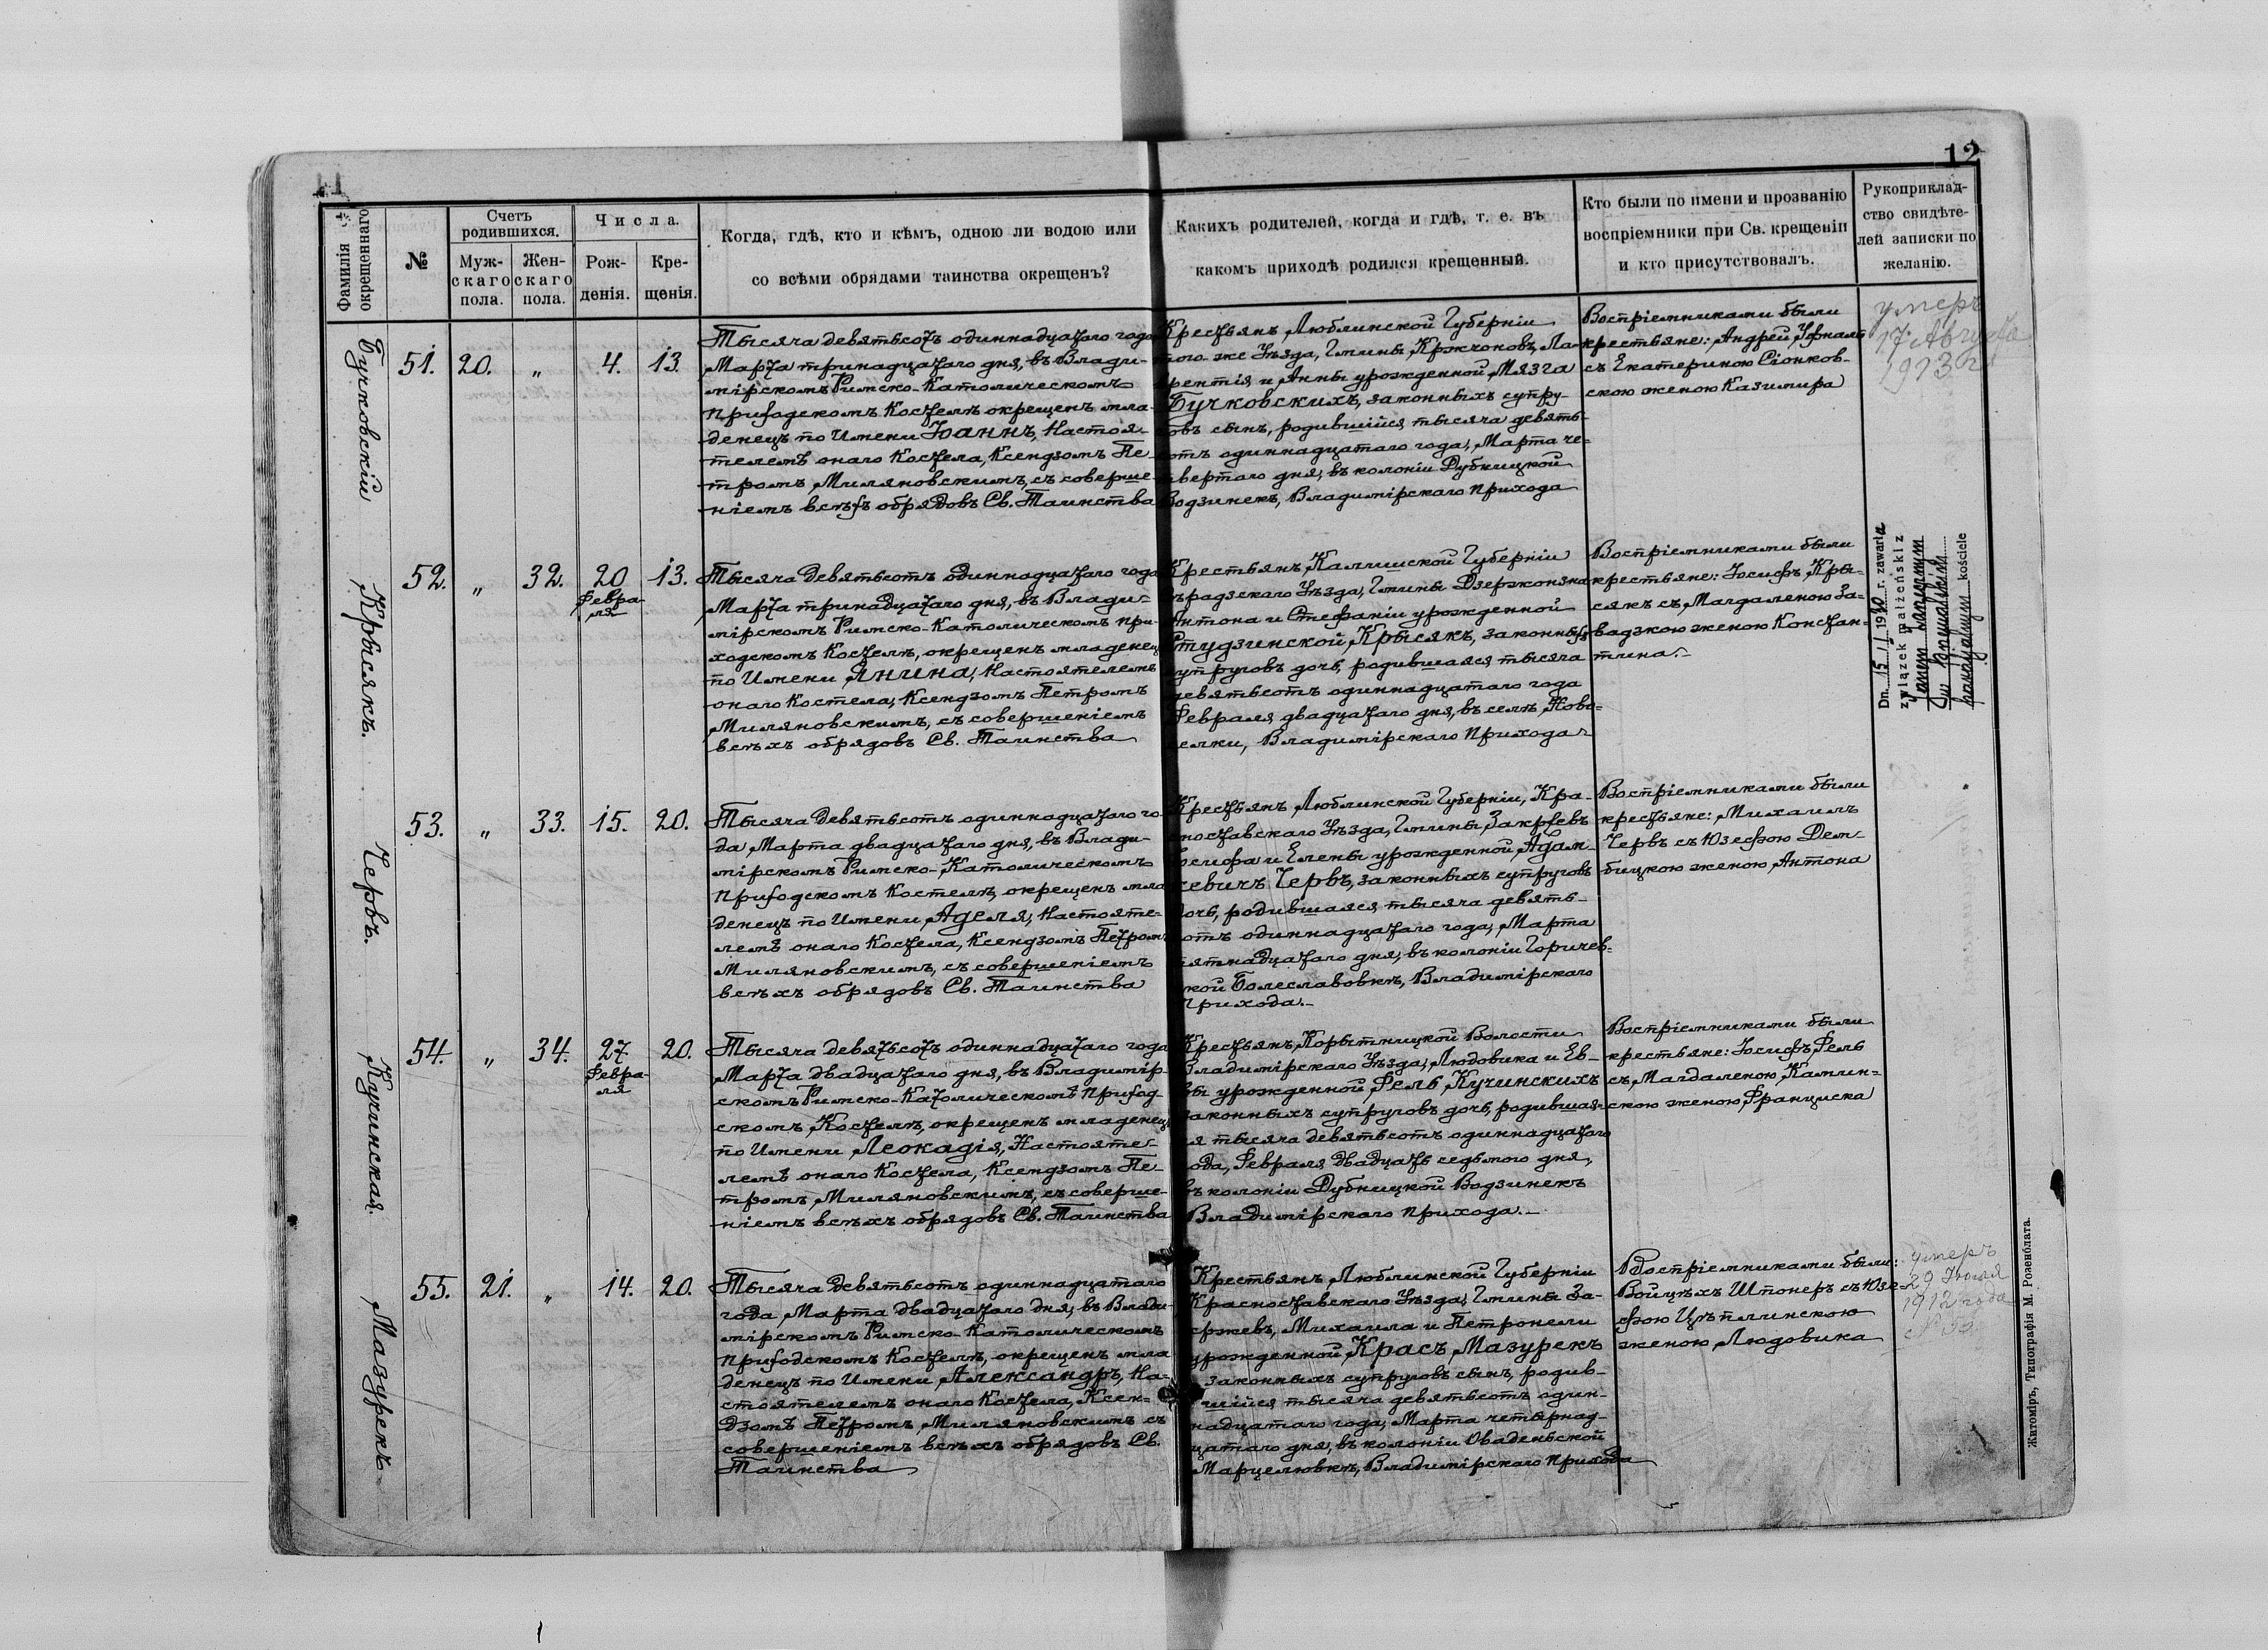 11
12
Фамилія окрещеннаго
№
Счетъ родившихся.
Мужскаго пола.
Женскаго пола.
Числа.
Рожденія.
Крещенія.
Когда, гдѣ, кто и кѣмъ, одною ли водою или
со всѣми обрядами таинства окрещенъ?
Какихъ родителей, когда и гдѣ, т. е. въ
какомъ приходѣ родился крещенный.
Кто были по имени и прозванію
воспріемники при Св. крещеніи
и кто присутствовалъ.
Рукоприклад-
ство свидѣте-
лей записки по
желанію.
Бучковскій
51. 20. „ 4. 13.
Тысяча девятьсотъ одиннадцатаго года
Марта тринадцатаго дня, въ Влади-
мірскомъ Римско-Католическомъ
Приходскомъ Костелѣ окрещенъ мла-
денецъ по Имени Іоаннъ, Настоя-
телемъ онаго Костела, Ксендзомъ Пе-
тромъ Миляновскимъ, съ соверше-
ніемъ всѣхъ обрядовъ Св. Таинства
Крестьянъ Люблинской Губерніи
того-же Уѣзда, Гмины Кржчоновъ, Ла-
рентія и Анны урожденной Мязга
Бучковскихъ, законныхъ супру-
овъ сынъ, родившійся тысяча девять-
отъ одиннадцатаго года, Марта че-
твертаго дня, въ колоніи Дубницкой
Водзинекъ, Владимірскаго прихода
Воспріемниками были
крестьяне: Андрей
съ Екатериною Сіонков-
скою женою Казимира
умеръ
17 Августа
1913 г
Крысякъ.
52. „ 32. 20 Февраля 13.
Тысяча девятьсотъ одиннадцатаго года
Марта тринадцатаго дня, въ Влади-
мірскомъ Римско-Католическомъ при-
ходскомъ Костелѣ, окрещенъ младенецъ
по Имени Янина, Настоятелемъ
онаго Костела, Ксендзомъ Петромъ
Миляновскимъ, съ совершеніемъ
всѣхъ обрядовъ Св. Таинства
Крестьянъ Калишской Губерніи
ѣрадзскаго Уѣзда, Гмины
Антона и Стефаніи урожденной
Студзинской Крысякъ, законныхъ
супруговъ дочь, родившаяся тысяча
девятьсотъ одиннадцатаго года
Февраля двадцатаго дня, въ селѣ Ново-
селки, Владимірскаго Прихода
Воспріемниками были
крестьяне: Іосифъ Кры-
сякъ съ Магдаленою За-
вадзкою женою Констан-
тина.-
Dn. 15/II 1930 r. zawarła
związek małżeński z
Janem
w
parafjalnym kościele
Червъ.
53. „ 33. 15. 20.
Тысяча девятьсотъ одиннадцатаго го-
да, Марта двадцатаго дня, въ Влади-
мірскомъ Римско-Католическомъ
Приходскомъ Костелѣ, окрещенъ мла
денецъ по Имени Аделя, Настояте-
лемъ онаго Костела, Ксендзомъ Петромъ
Миляновскимъ, съ совершеніемъ
всѣхъ обрядовъ Св. Таинства
Крестьянъ Люблинской Губерніи, Кра-
сноставскаго Уѣзда, Гмины
Іосифа и Елены урожденной Адам-
кевичъ Червъ, законныхъ супруговъ
дочь, родившаяся тысяча девять-
отъ одиннадцатаго года, Марта
пятнадцатаго дня, въ колоніи Горичев-
кой Болеславовкѣ, Владимірскаго
Прихода.-
Воспріемниками были
крестьяне: Михаилъ
Червъ съ Юзефою Дем-
бицкою женою Антона
Кучинская.
54. „ 34. 27 Февраля 20.
Тысяча девятьсотъ одиннадцатаго года
Марта двадцатаго дня, въ Владимір-
скомъ Римско-Католическомъ Приход-
скомъ Костелѣ, окрещенъ младенецъ
по Имени Леокадія, Настояте-
лемъ онаго Костела, Ксендзомъ Пе-
тромъ Миляновскимъ, съ соверше-
ніемъ всѣхъ обрядовъ Св. Таинства
Крестьянъ, Корытницкой Волости
Владимірскаго Уѣзда, Людовика и Ев-
вы урожденной Фель Кучинскихъ
законныхъ супруговъ дочь, родившая-
ся тысяча девятьсотъ одиннадцатаго
ода, Февраля двадцать седьмого дня,
въ колоніи Дубницкой Водзинекъ
Владимірскаго прихода.-
Воспріемниками были
крестьяне: Іосифъ Фель
съ Магдаленою Камин-
скою женою Франциска
Мазурекъ
55. 21. „ 14. 20.
Тысяча девятьсотъ одиннадцатаго
года, Марта двадцатаго дня, въ Влади-
мірскомъ Римско-Католическомъ
Приходскомъ Костелѣ, окрещенъ мла
денецъ по Имени Александръ, На-
стоятелемъ онаго Костела, Ксен-
дзомъ Петромъ Миляновскимъ съ
совершеніемъ всѣхъ обрядовъ Св.
Таинства
Крестьянъ Люблинской Губерніи
Красноставскаго Уѣзда, Гмины За-
кржевъ, Михаила и Петронели
урожденной Красъ Мазурекъ
законныхъ супруговъ сынъ, родив-
шійся тысяча девятьсотъ один-
надцатаго года, Марта четырнад-
цатаго дня, въ колоніи Оваденьской
Марцелювкѣ, Владимірскаго прихода
Воспріемниками были:
Войцѣхъ Штонеръ съ Юзе-
фою Цѣплинскою
женою Людовика
умеръ
29 Іюля
1912 года
Житоміръ, Типографія М. Розенблата.